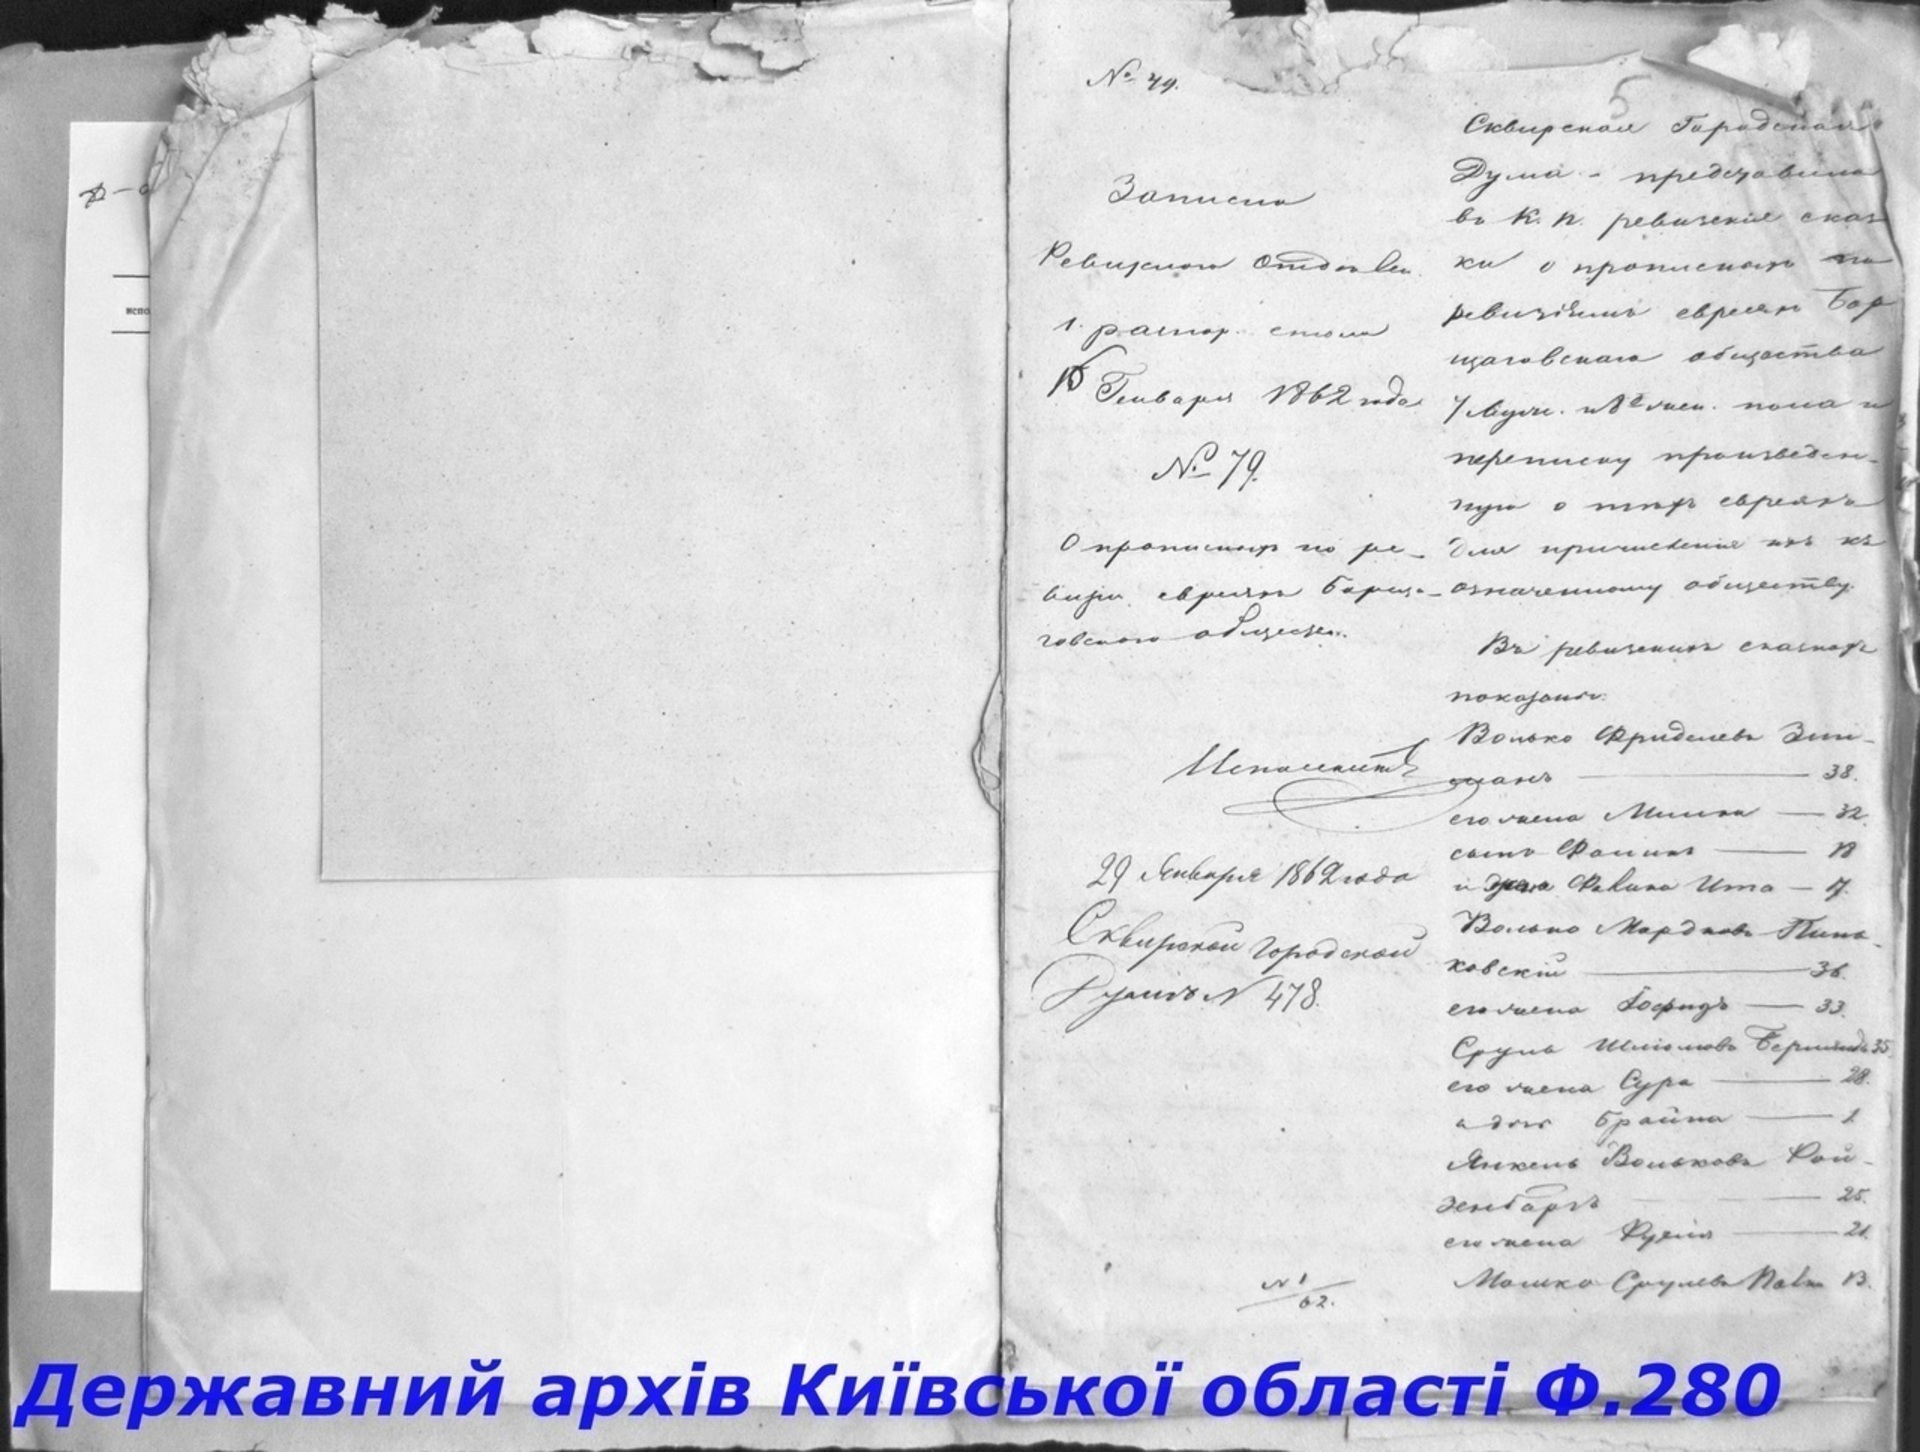 № 79.
5
Записка
Ревизского Отделен.
1. распор. стола
15 Генваря 1862 года
№ 79.
О прописных по ре-
визи евреях Борща-
говского обществ.
29 Января 1862 года
Сквирской Городской
Думе № 478.
№ 1/62.
Сквирская Городская
Дума - представила
въ К. П. ревизские сказ
ки о прописных по
ревизиям евреях Бор
щаговского общества
7 муж. и 8 жен. пола и
переписку произведен-
ную о тех евреях
для причисления их къ
означенному обществу.
Въ ревизских сказках
показаны:
Волько Фриделевъ
38.
его жена — 32.
сынъ — 18
и Ита — 17.
Волько Мордковъ Пинь-
ковский — 36.
его жена — 33.
Сруль Шлiомовъ 35.
его жена Сура — 28.
и дочь Брайна — 1
Янкель Вольковъ Рой-
зенбаргъ — 25.
его жена — 21.
Мошко Срулевъ 13.
испо
Державний архів Київської області Ф.280